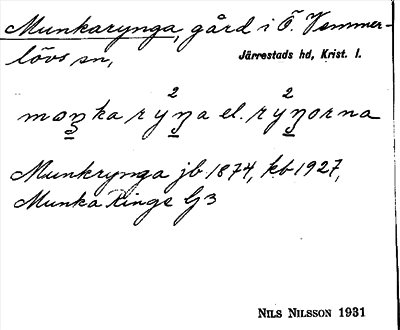 Munkarynga, gård i Ö. Vemmer-
lövs sn, Järrestads hd, Krist. l.
moŋka rý²ŋa el. rý²ŋorna
Munkrynga jb 1874, kb 1927,
Munka Ringe G3
NILS NILSSON 1931